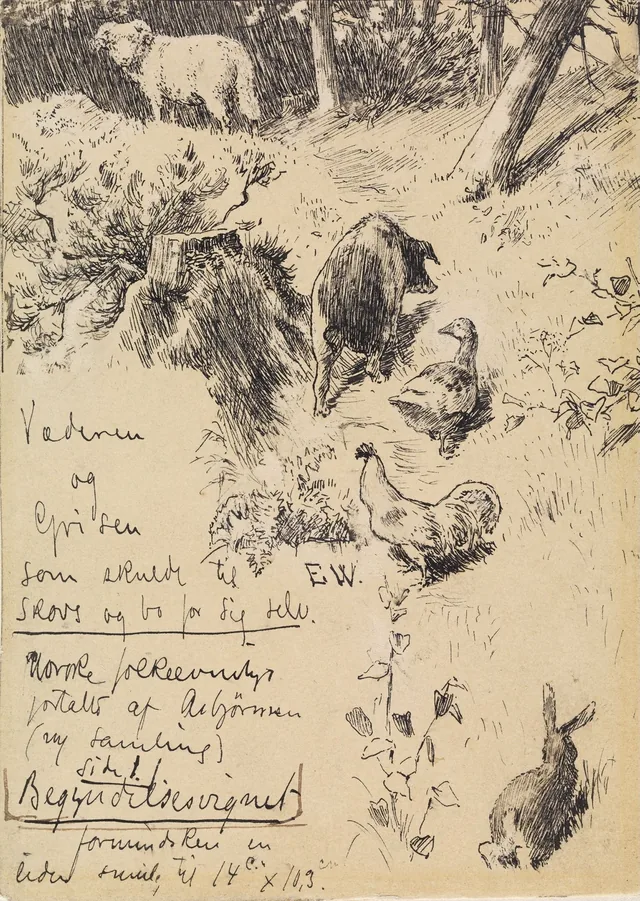 Væderen
og
Grisen
som skulde til
Skovs og bo for sig selv.
E.W.
Norske folkeeventyr
fortalte af Asbjörnsen
(ny samling)
Side 1.
Begyndelsesvignet
formindskes en
liden smule, til 14 c. x 10,3 cm